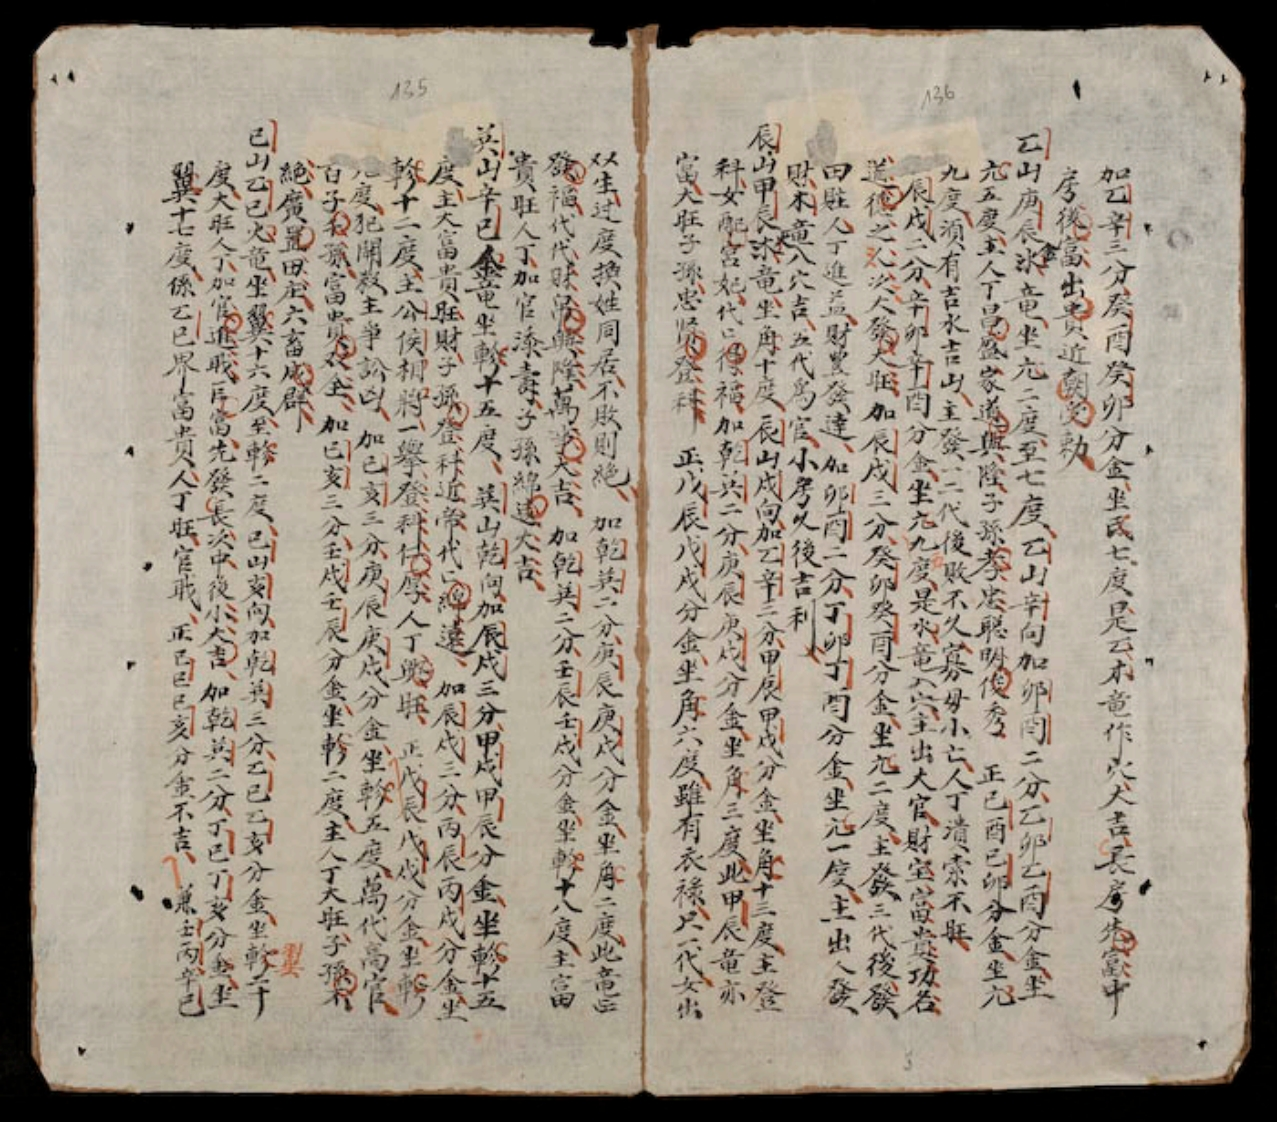 136
加乙辛三分癸酉癸卯分金坐氐七度是乙木竜作穴大吉長房先富中
房後富出貴近朝受勅
乙山庚辰金竜坐亢二度至七度乙山辛向加卯酉二分乙卯乙酉分金坐
亢五度主人丁昌盛家道興隆子孫孝忠聪明俊秀 正己酉己卯分金坐亢
九度須有吉水吉山主發一二代後敗不久寡母小亡人丁潰索不旺
辰戌二分辛卯辛酉分金坐亢九度是水竜入穴主出大官財宝富貴功名
道德之人次大發大旺加辰戌三分癸卯癸酉分金坐亢二度主發三代後發
田庄人丁進益財豐發達加卯酉二分丁卯丁酉分金坐亢一度主出人發
財木竜八穴吉五代爲官小房久後吉利
辰山甲辰水竜坐角十度辰山戌向加乙辛二分甲辰甲戌分金坐角十三度主登
科女配宮妃代代得福加乾巽二分庚辰庚戌分金坐角三度此甲辰竜亦
富大旺子孫忠賢登科 正戊辰戊戌分金坐角六度雖有衣祿只一代女出
135
双生过度換姓同居不敗則絕 加乾巽二分庚辰庚戌分金坐角二度此竜出
發福代代財帛興隆萬事大吉 加乾巽二分壬辰壬戌分金坐軫十八度主富
貴旺人丁加官添壽子孫綿遠大吉
巽山辛巳金竜坐軫十五度巽山乾向加辰戌三分甲戌甲辰分金坐軫十五
度主大富貴旺財子孫登科近帝代代綿遠 加辰戌三分丙辰丙戌分金坐
軫十二度主公侯相將一舉登科仕厚人丁興旺 正戊辰戊戌分金坐軫
九度犯開殺主爭訟凶 加己亥三分庚辰庚戌分金坐軫五度萬代高官
百子千孫富貴双全 加巳亥三分壬戌壬辰分金坐軫二度主人丁大旺子孫不
絕廣置田庄六畜成群
巳山乙巳火竜坐翼十六度至軫二度巳山亥向加乾巽三分乙巳乙亥分金坐軫二十
翼
度大旺人丁加官進职巨富先發長次中後小大吉 加乾巽二分丁巳丁亥分金坐
翼十七度係乙巳界富貴人人丁旺官职 正己巳己亥分金不吉 兼壬丙辛巳